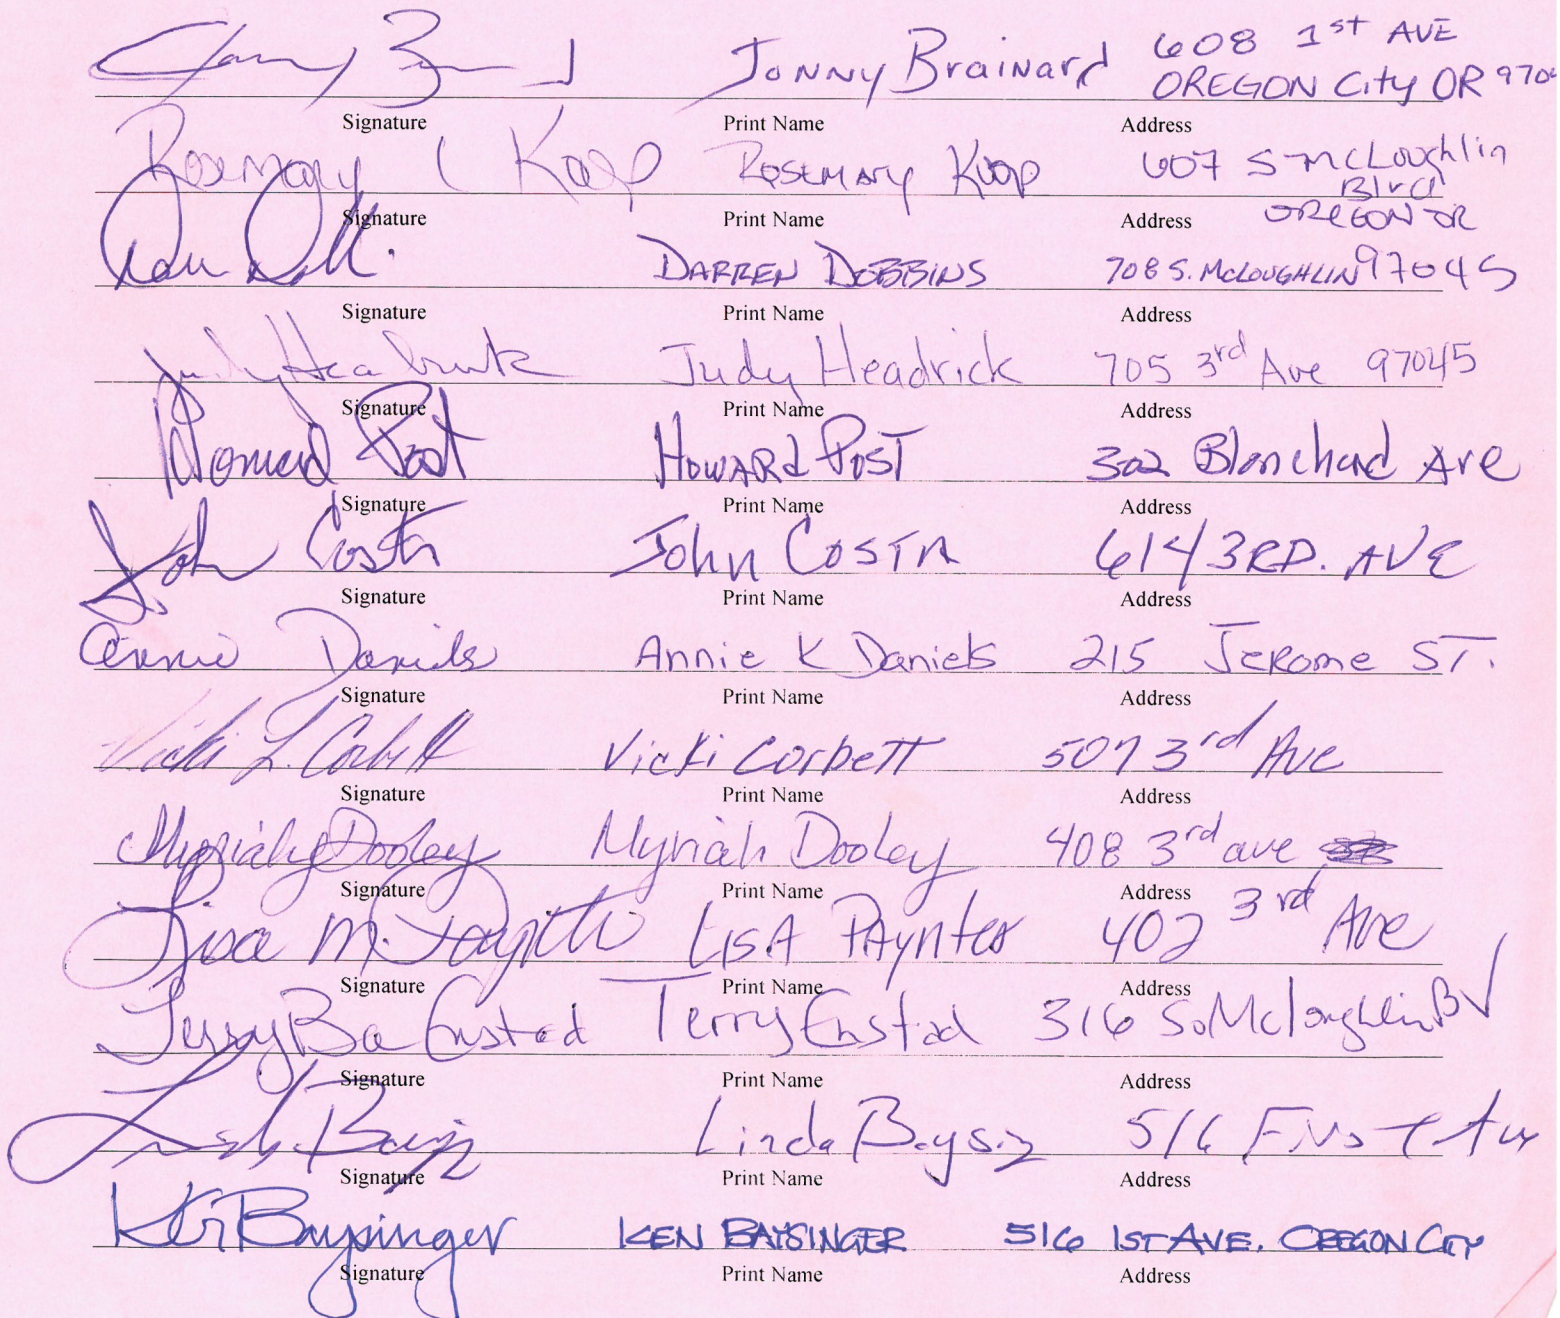 608 1st AVE
Jonny Brainard OREGON City OR 9704
Signature Print Name Address
Rosemary L Koop Rosemary Koop 607 S McLoughlin
Blvd
Signature Print Name Address OREGON OR
DARREN DOBBINS 708 S. McLOUGHLIN 97045
Signature Print Name Address
Judy Headrick Judy Headrick 705 3rd Ave 97045
Signature Print Name Address
Howard Post HOWARd POST 302 Blanchard Ave
Signature Print Name Address
John Costa John COSTA 614 3RD. AVE
Signature Print Name Address
Annie Daniels Annie K Daniels 215 Jerome ST.
Signature Print Name Address
Vicki L. Corbett Vicki Corbett 507 3rd Ave
Signature Print Name Address
Myriah Dooley Myriah Dooley 408 3rd ave
Signature Print Name Address
Lisa M. Paynter LISA PAynter 402 3rd Ave
Signature Print Name Address
Terry Enstad Terry Enstad 316 So McLoughlin Bv
Signature Print Name Address
Linda Linda 516 First Ave
Signature Print Name Address
Ken Baysinger KEN BAYSINGER 516 1ST AVE. OREGON CITY
Signature Print Name Address